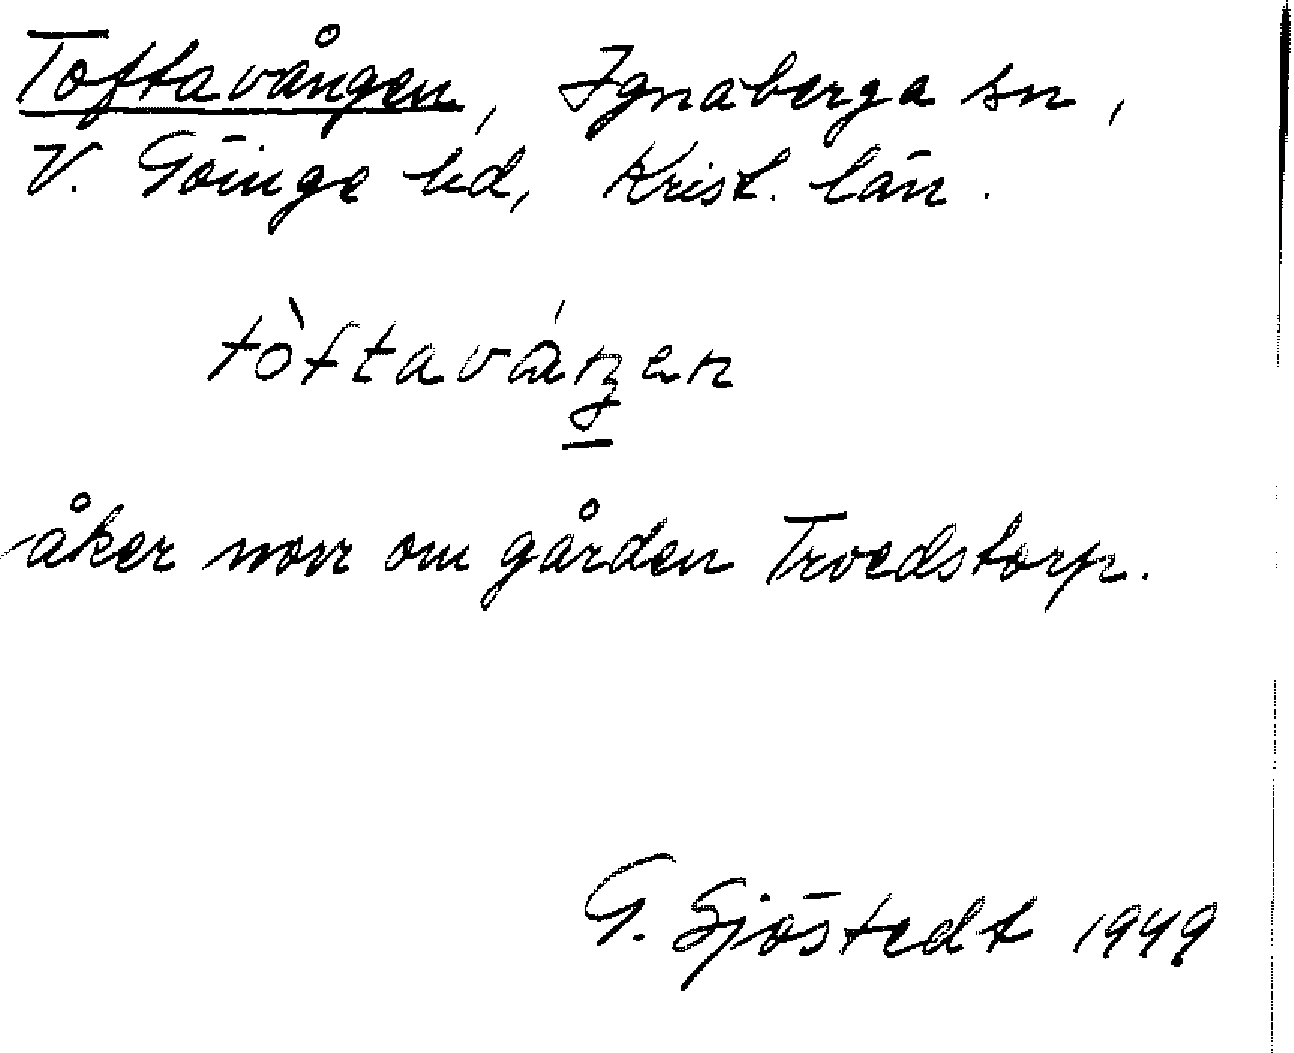 Toftavången, Ignaberga sn,
V. Göinge hd, Krist. län.
tòftaváŋen
åker norr om gården Troedstorp.
G. Sjöstedt 1949